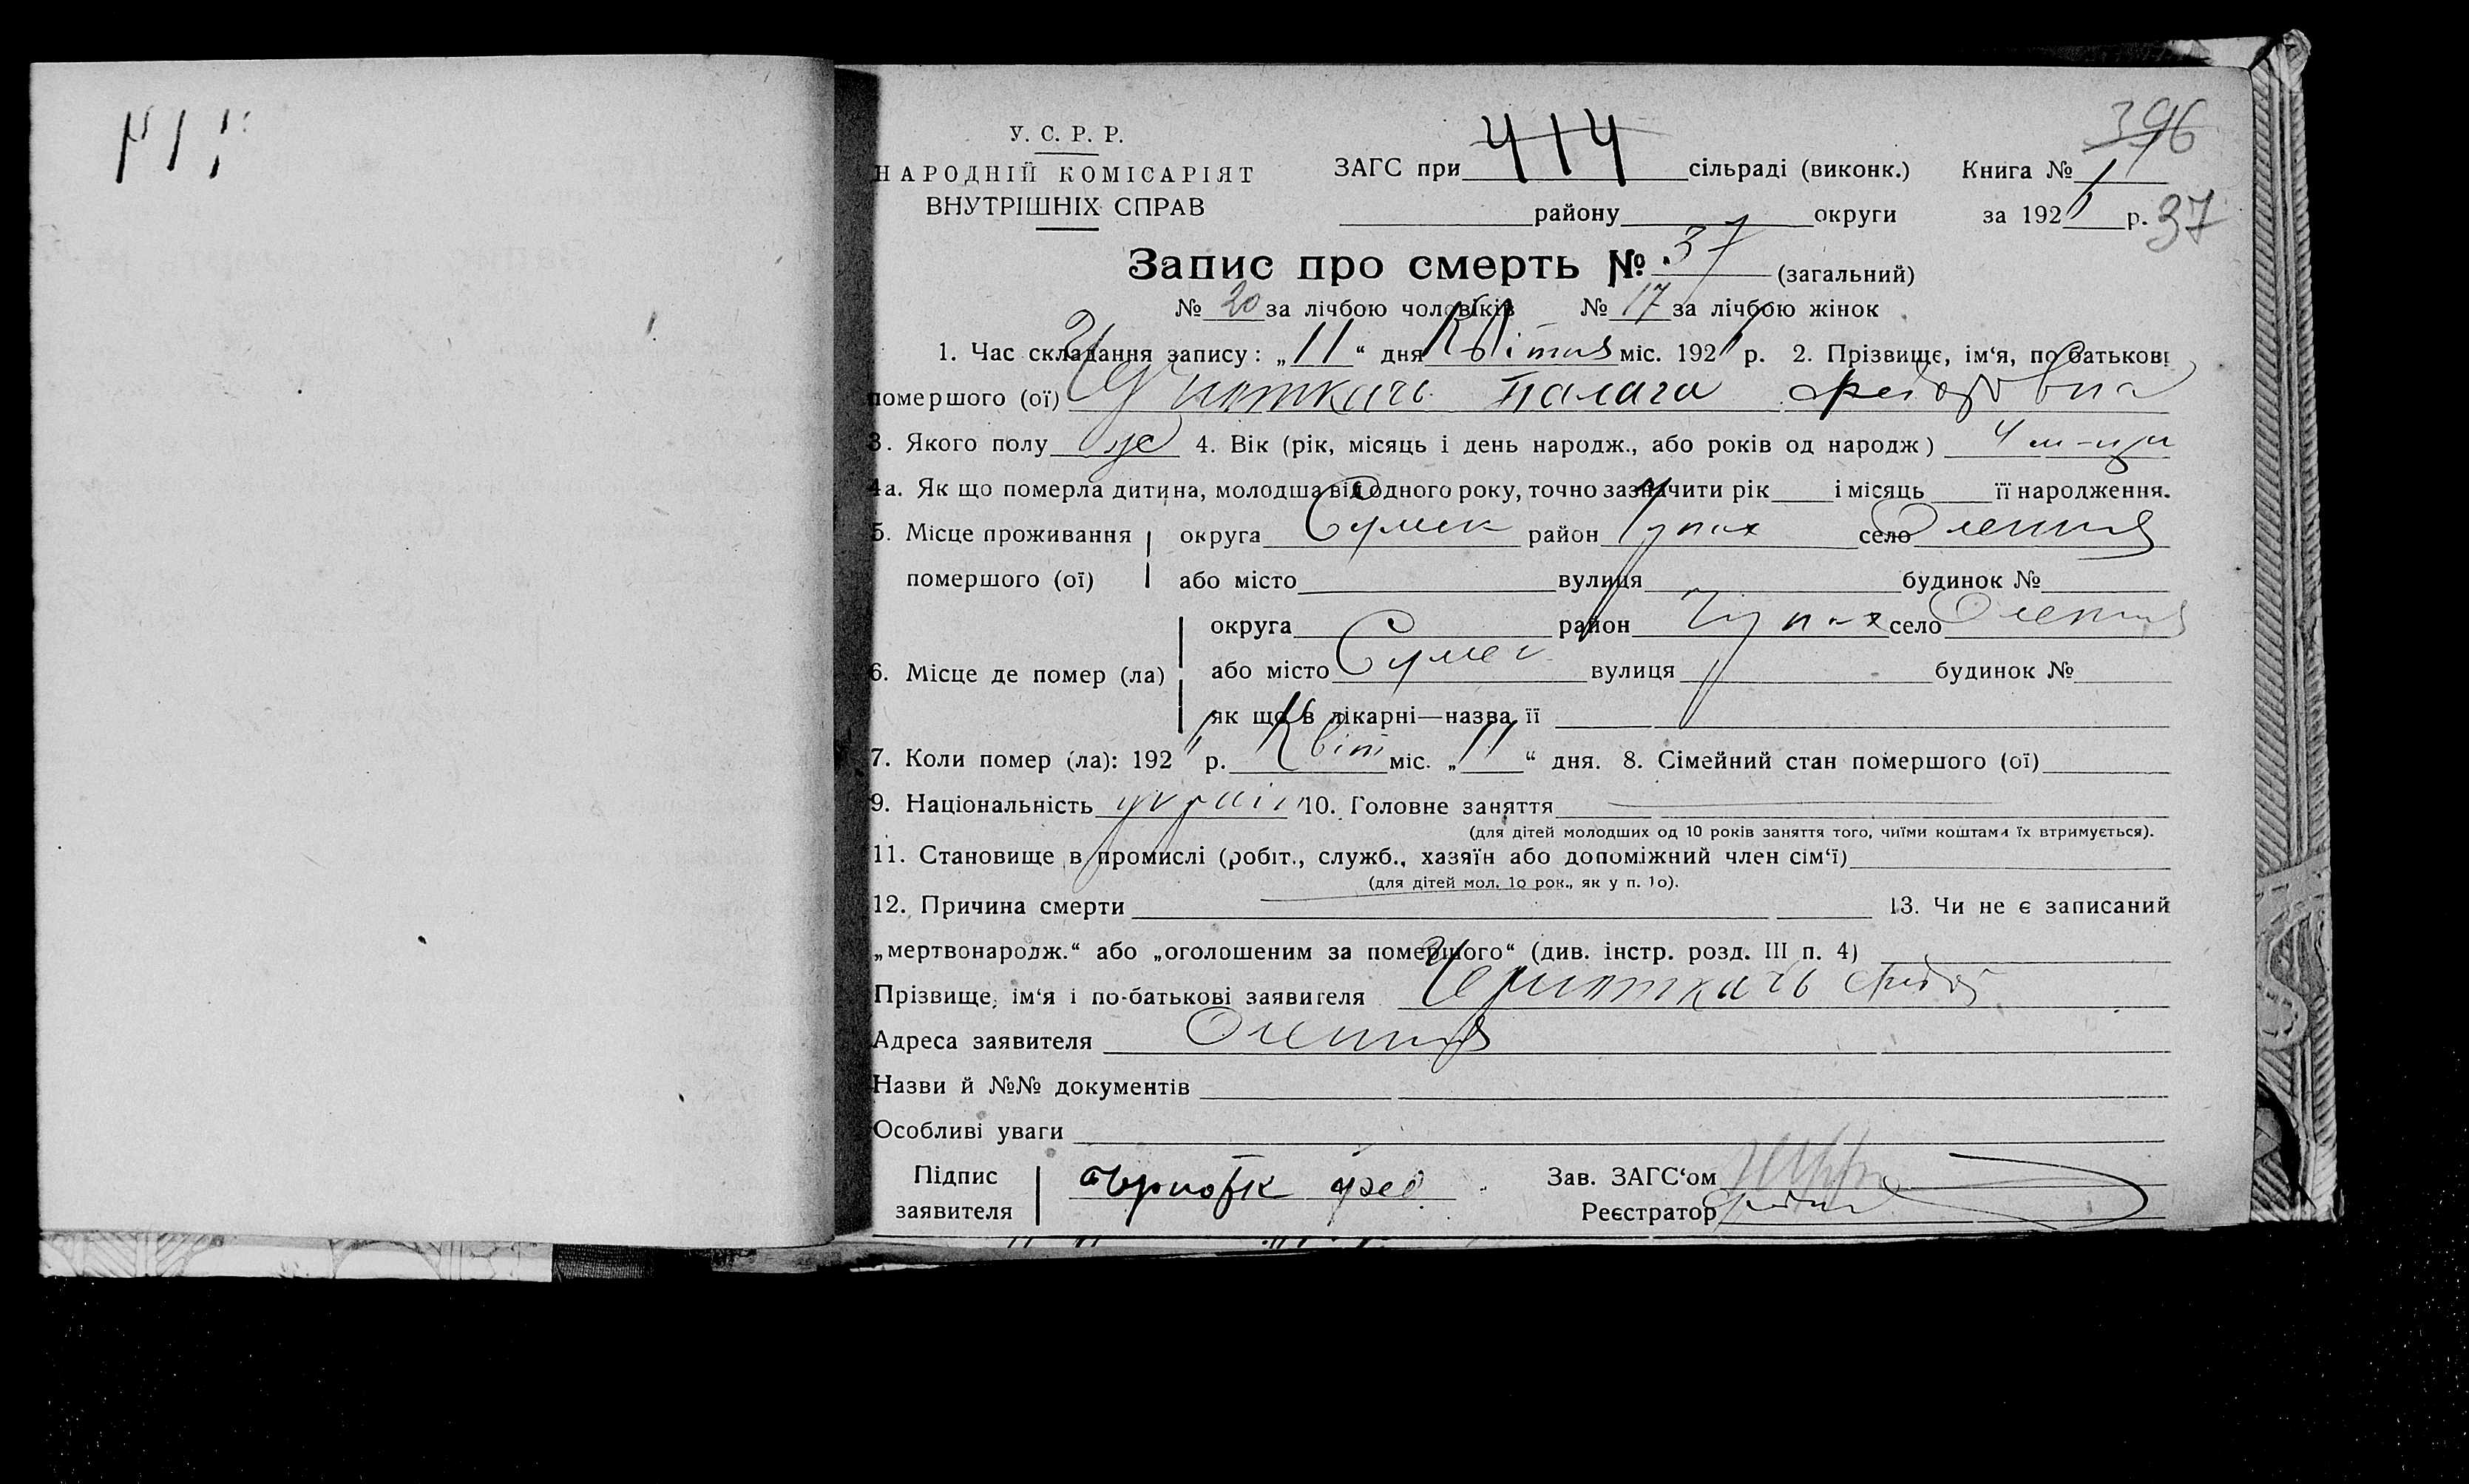 У. С. Р. Р.
НАРОДНІЙ КОМІСАРІЯТ
ВНУТРІШНІХ СПРАВ
396
ЗАГС при 414 сільраді (виконк.) Книга № 1
району округи за 192 р. 37
Запис про смерть № 37 (загальний)
№ 20 за лічбою чоловіків № 17 за лічбою жінок
1. Час складання запису: „11“ дня Квітня міс. 192 р. 2. Прізвище, ім‘я, по батькові
помершого (ої) Палага Федоровна
3. Якого полу же 4. Вік (рік, місяць і день народж., або років од народж) 4 м-ци
4а. Як що померла дитина, молодша від одного року, точно зазначити рік і місяць її народження.
5. Місце проживання округа Сумск район село Олення
помершого (ої) або місто вулиця будинок №
округа район село Олення
6. Місце де помер (ла) або місто Сумск вулиця будинок №
як що в лікарні—назва її
7. Коли помер (ла): 192 р. Квіт міс. „11“ дня. 8. Сімейний стан помершого (ої)
9. Національність україн 10. Головне заняття
(для дітей молодших од 10 років заняття того, чиїми коштами їх втримується).
11. Становище в промислі (робіт., служб., хазяїн або допоміжний член сім‘ї)
(для дітей мол. 1о рок., як у п. 1о).
12. Причина смерти 13. Чи не є записаний
„мертвонародж.“ або „оголошеним за помершого“ (див. інстр. розд. III п. 4)
Прізвище, ім‘я і по-батькові заявителя
Адреса заявителя Олення
Назви й №№ документів
Особливі уваги
Підпис
заявителя
Зав. ЗАГС‘ом
Реєстратор